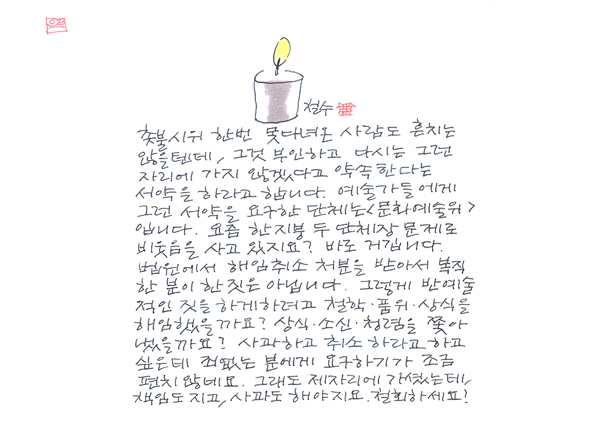 철수
촛불시위 한번 못다녀온 사람도 흔치는
않을텐데, 그것 부인하고 다시는 그런
자리에 가지 않겠다고 약속한다는
서약을 하라고 합니다. 예술가들에게
그런 서약을 요구한 단체는<문화예술위>
입니다. 요즘 한지붕 두 단체장 문제로
비웃음을 사고 있지요? 바로 거깁니다.
법원에서 해임취소 처분을 받아서 복직
한 분이 한 짓은 아닙니다. 그렇게 반예술
적인 짓을 하게하려고 철학·품위·상식을
해임했을까요? 상식·소신·청렴을 쫓아
냈을까요? 사과하고 취소하라고 하고
싶은데 죄없는 분에게 요구하기가 조금
편치 않네요. 그래도 제자리에 가셨는데,
책임도 지고, 사과도 해야지요. 철회하세요!